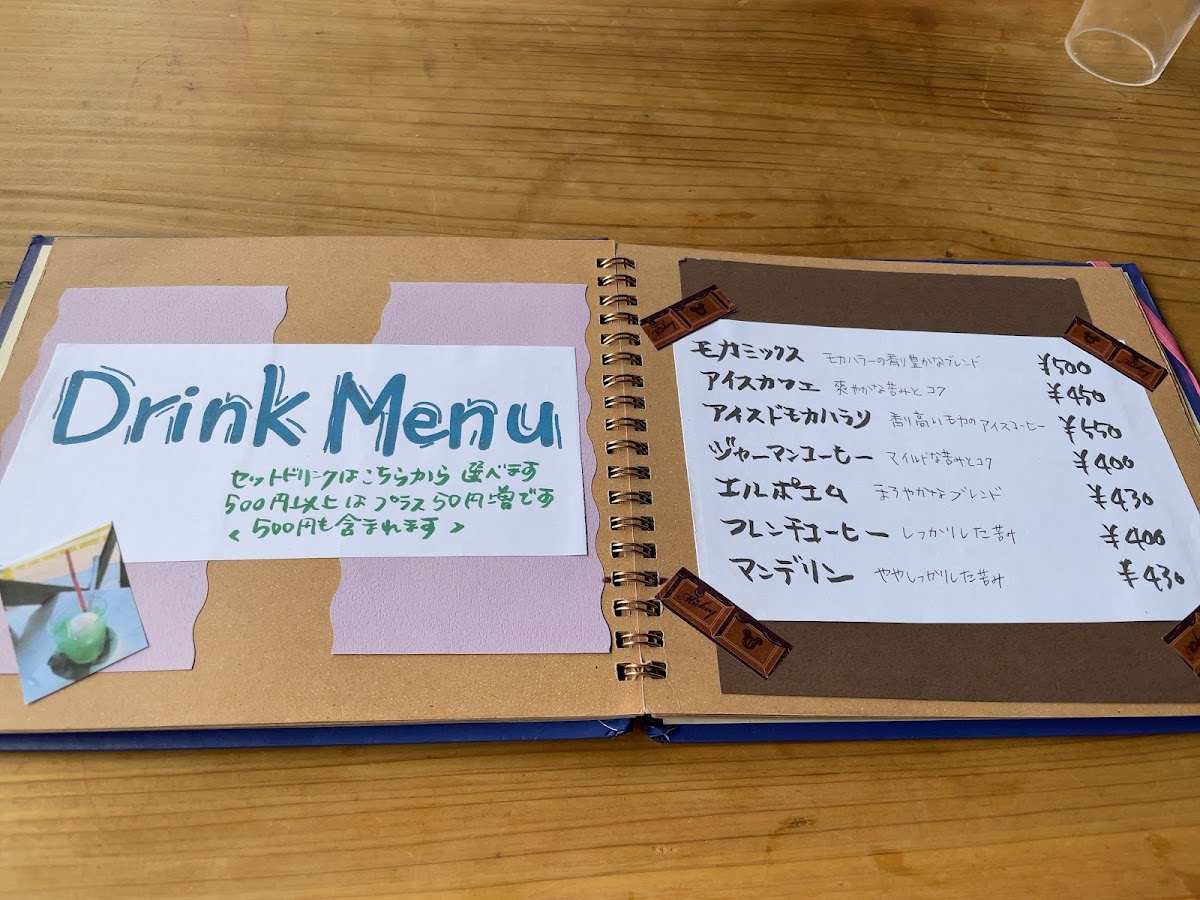 Drink Menu
セットドリンクはこちらから 選べます
500円以上は プラス50円増です
< 500円も含まれます >
モカミックス モカハラーの香り豊かなブレンド ¥500
アイスカフェ 爽やかな苦みとコク ¥450
アイスドモカハラリ 香り高いモカのアイスコーヒー ¥550
ジャーマンコーヒー マイルドな苦みとコク ¥400
エルポエム まろやかなブレンド ¥430
フレンチコーヒー しっかりした苦み ¥400
マンデリン ややしっかりした苦み ¥430
Mickey